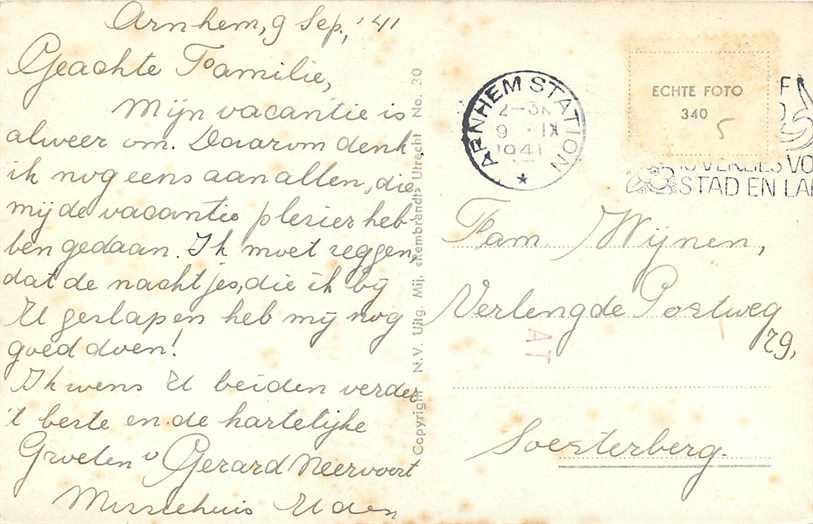 Arnhem, 9 Sep., '41
Geachte Familie,
Mijn vacantie is
alweer om. Daarom denk
ik nog eens aan allen, die
mij de vacantie plezier heb-
ben gedaan. Ik moet zeggen,
dat de nachtjes, die ik bij
U geslapen heb mij nog
goed doen!
Ik wens U beiden verder
't beste en de hartelijke
Groeten v Gerard Neervoort
Missiehuis Uden
Copyright N.V. Uitg. Mij. «Rembrandt» Utrecht No. 30
ARNHEM STATION
9 IX
1941
ECHTE FOTO
340
5
VERLIES VO
STAD EN LA
Fam. Wijnen,
Verlengde Postweg
79,
AT
Soesterberg.